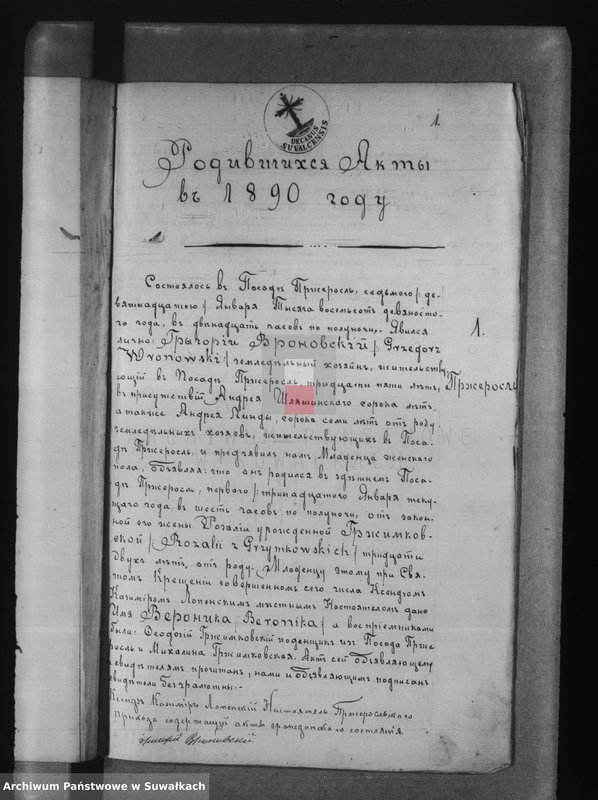 DECANUS SUVALCENSIS
1.
Родившихся Акты
въ 1890 году
Состоялось въ Посадѣ Пржеросль, седьмого /: де-
вятнадцатого / Января Тысяча восемьсотъ девяносто-
го года, въ двѣнадцать часовъ по полуночи,. Явился
лично: Грыгорій Вроновскій /: Grzegorz
Wronowski / земледѣльный хозяинъ, жительству-
ющій въ Посадѣ Пржеросль, тридцати пяти лѣтъ,
въ присутствіи Андрея Шляшинскаго сорока лѣтъ,
а также Андрея Линды, сорока семи лѣтъ отъ роду,
земледѣльныхъ хозяевъ, жительствующихъ въ Поса-
дѣ Пржеросль, и предъявилъ намъ Младенца женскаго
пола, объявляя: что онъ родился въ здѣшнемъ Поса-
дѣ Пржеросль, перваго /: тринадцатого Января теку-
щаго года, въ шесть часовъ по полуночи, отъ закон-
ной его жены Розаліи урожденной Гржимков-
ской /: Rozalii z Grzymkowskich / тридцати
двухъ лѣтъ, отъ роду. Младенцу этому при Свя-
томъ Крещеніи совершенномъ сего числа Ксендзомъ
Казиміромъ Лопенскимъ мѣстнымъ Настоятелемъ дано
Имя Вероника / Weronika / а воспріемниками
были: Ѳеофилъ Гржимковскій поденщикъ изъ Посада Прже-
росль и Михалина Гржимковская. Актъ сей объявляющему
и свидѣтелямъ прочитанъ, нами и объявляющимъ подписанъ
свидѣтели безграмотны.-
Ксендзъ Казиміръ Лопенскій Настоятель Пржеросльскаго
Прихода содержащій акты гражданскаго состоянія
Вроновскій
1.
Пржеросль
Archiwum Państwowe w Suwałkach